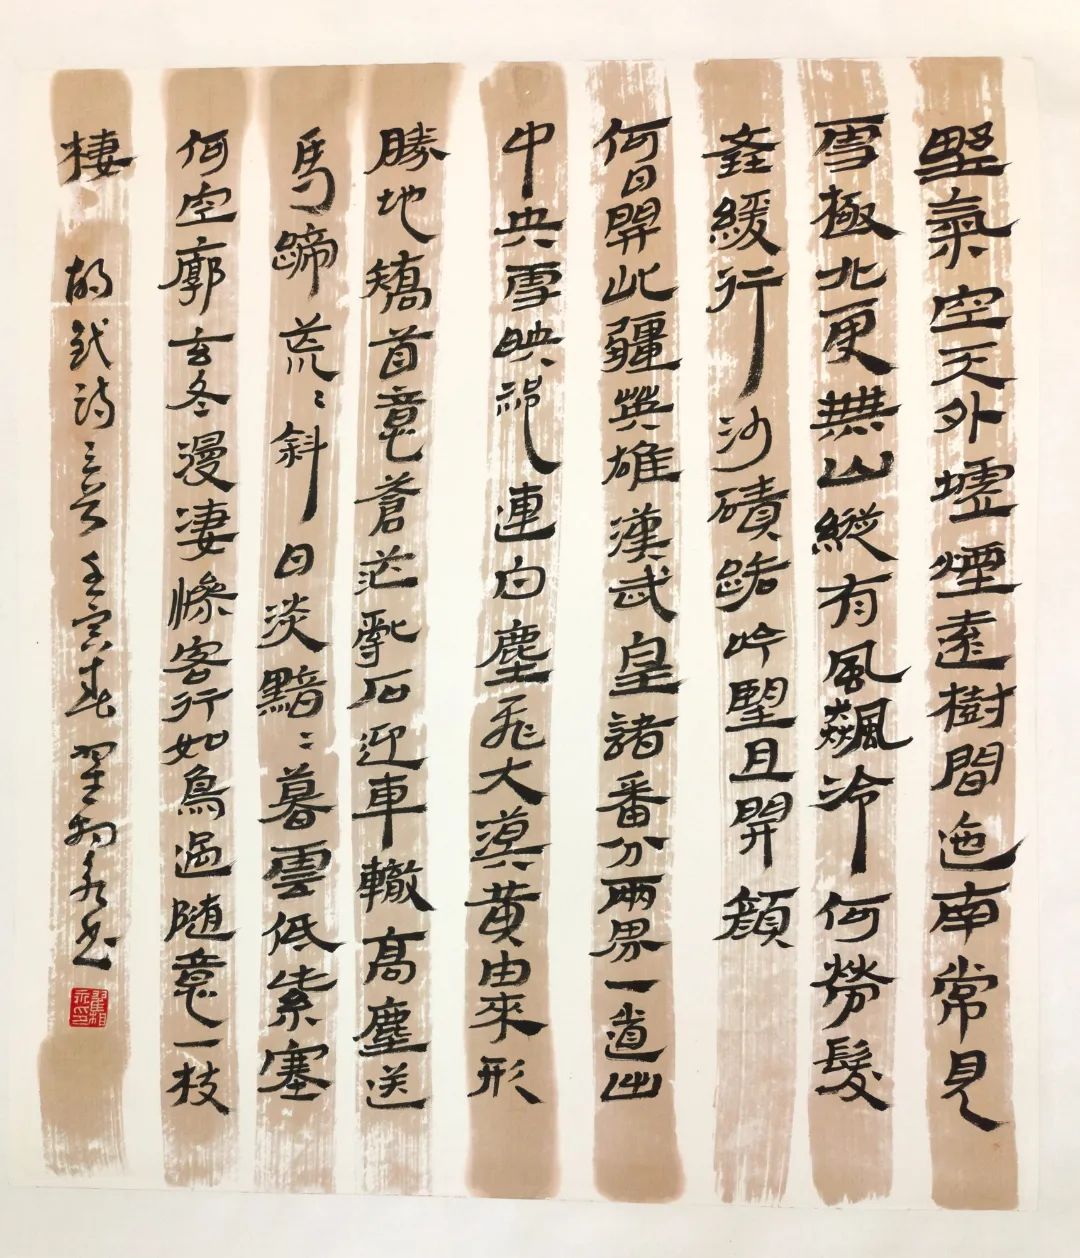 野氣空天外墟煙遠樹間迤南常見
雪極北更無山縱有風飆冷何勞髮
緩行沙磧路吟望且開顏
何日開此疆英雄漢武皇諸番分兩界一道出
中央雪映祁連白塵飛大漠黃由來形
勝地矯首意蒼茫亂石迎車轍高塵送
馬蹄荒〻斜日淡黯〻暮雲低紫塞
何空廓玄冬漫凄慘客行如鳥過隨意一枝
棲 胡釴詩三首壬寅春翟相永書